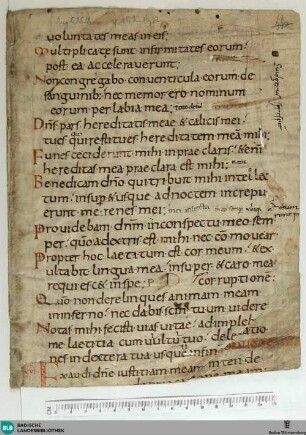 uoluntates meas ineis;
Multiplicatę sunt infirmitates eorum
post ea accelerauerunt;
Non congregabo conuenticula eorum de
sanguinib; nec memor ero nominum
eorum per labia mea;
Dns pars hereditatis meae & calicis mei
tu es qui restitues hereditatem meā mihi;
Funes ceciderunt mihi in praeclaris & eni
hereditas mea praeclara est mihi;
Benedicam dno qui tribuit mihi intellec
tum insup & usque ad noctem increpu
erunt me renes mei;
Prouidebam dnm in conspectu meo sem
per quo a dextris est mihi ne commouear
Propter hoc laetatum est cor meum & ex
ultabit lingua mea insuper & caro mea
requiescet in spe;
corruptione;
Quo non derelinques animam meam
in inferno nec dabis scm tuum uidere
Notas mihi fecisti uias uitae adimple
me laetitia cum uultu tuo delectatio
nes in dextera tua usque in fine
Exaudi dne iustitiam meam intende
BLB
BADISCHE
LANDESBIBLIOTHEK
Baden-Württemberg